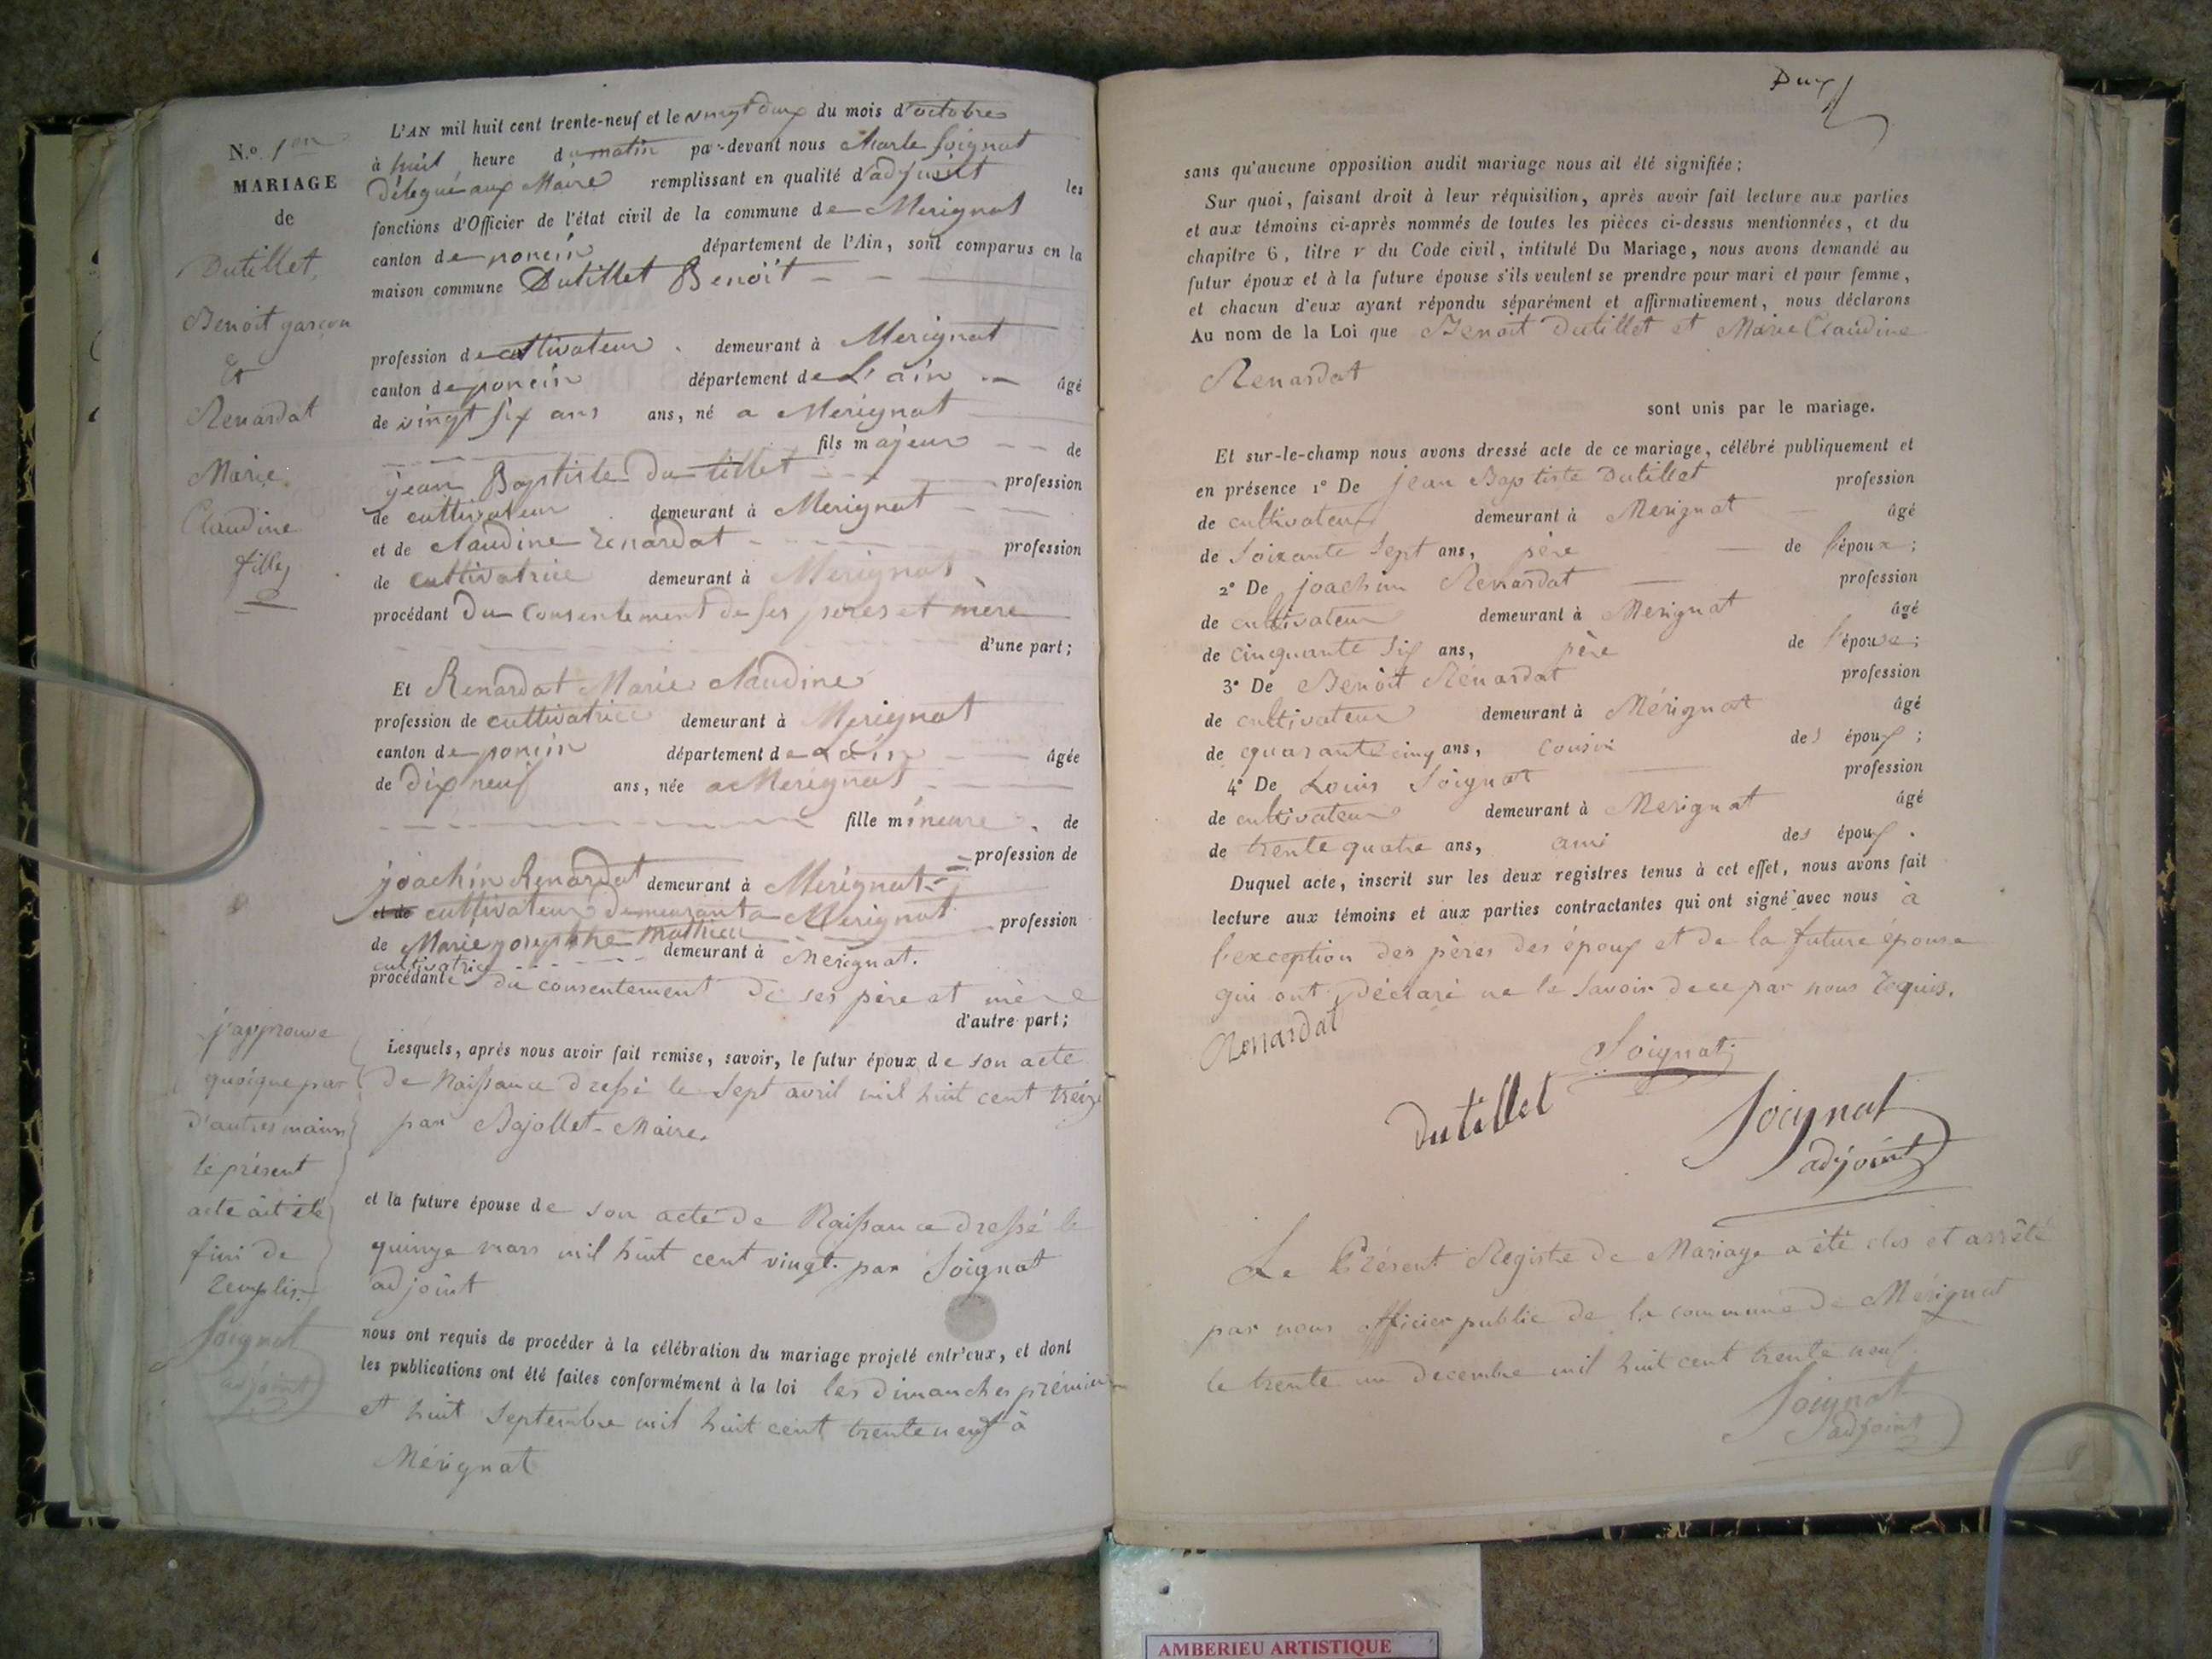 N.o 1er
MARIAGE
de
Dutillet,
Benoit garçon
Et
Renardat
Marie
Claudine
fille
L'AN mil huit cent trente-neuf et le vingt deux du mois d'octobre
à huit heure du matin par-devant nous Charle Soignat
Délegué aux Maire remplissant en qualité d'adjoint les
fonctions d'Officier de l'état civil de la commune de Merignat
canton de poncin département de l'Ain, sont comparus en la
maison commune Dutillet Benoit
profession de cultivateur demeurant à Merignat
canton de poncin département de L'ain âgé
de vingt six ans ans, né a Merignat
fils majeur de
jean Baptiste Dutillet profession
de cultivateur demeurant à Merignat
et de Claudine renardat profession
de cultivatrice demeurant à Merignat
procédant du consentement de ses pères et mère
d'une part;
Et Renardat Marie Claudine
profession de cultivatrice demeurant à Merignat
canton de poncin département de Lain âgée
de dix neuf ans, née a Merignat
fille mineure de
profession de
joachin Renardat demeurant à Merignat
et de cultivateur demeurant a Merignat
de Marie josephthe Mathieu profession
cultivatrice demeurant à Merignat.
procédante du consentement de ses père et mère
d'autre part;
Lesquels, après nous avoir fait remise, savoir, le futur époux de son acte
de Naissance dressé le sept avril mil huit cent treize
par Bajollet Maire.
et la future épouse de son acte de Naissance dressé le
quinze mars mil huit cent vingt par Soignat
adjoint
nous ont requis de procéder à la célébration du mariage projeté entr'eux, et dont
les publications ont été faites conformément à la loi les dimanches prémier
et huit septembre mil huit cent trente neuf à
Mérignat
j'approuve
quoique par
d'autres mains
le présent
acte ait été
fini de
remplir.
Soignat
adjoint
Deux
sans qu'aucune opposition audit mariage nous ait été signifiée;
Sur quoi, faisant droit à leur réquisition, après avoir fait lecture aux parties
et aux témoins ci-après nommés de toutes les pièces ci-dessus mentionnées, et du
chapitre 6, titre v du Code civil, intitulé Du Mariage, nous avons demandé au
futur époux et à la future épouse s'ils veulent se prendre pour mari et pour femme,
et chacun d'eux ayant répondu séparément et affirmativement, nous déclarons
Au nom de la Loi que Benoit Dutillet et Marie Claudine
Renardat
sont unis par le mariage.
Et sur-le-champ nous avons dressé acte de ce mariage, célébré publiquement et
en présence 1º De jean Baptiste Dutillet profession
de cultivateur demeurant à Merignat âgé
de soixante sept ans, père de l'époux;
2º De joachim Renardat profession
de cultivateur demeurant à Merignat âgé
de cinquante six ans, père de l'épouse;
3º De Benoit Rénardat profession
de cultivateur demeurant à Mérignat âgé
de quarante cinq ans, cousin des époux;
4º De Louis Soignat profession
de cultivateur demeurant à Merignat âgé
de trente quatre ans, ami des époux.
Duquel acte, inscrit sur les deux registres tenus à cet effet, nous avons fait
lecture aux témoins et aux parties contractantes qui ont signé avec nous à
l'exception des pères des époux et de la future épouse
qui ont déclaré ne le savoir de ce par nous requis.
Renardat
Soignat
Dutillet
Soignat
adjoint
Le Présent Registre de Mariage a été clos et arrêté
par nous officier public de la commune de Mérignat
le trente un decembre mil huit cent trente neuf
Soignat
adjoint
AMBERIEU ARTISTIQUE